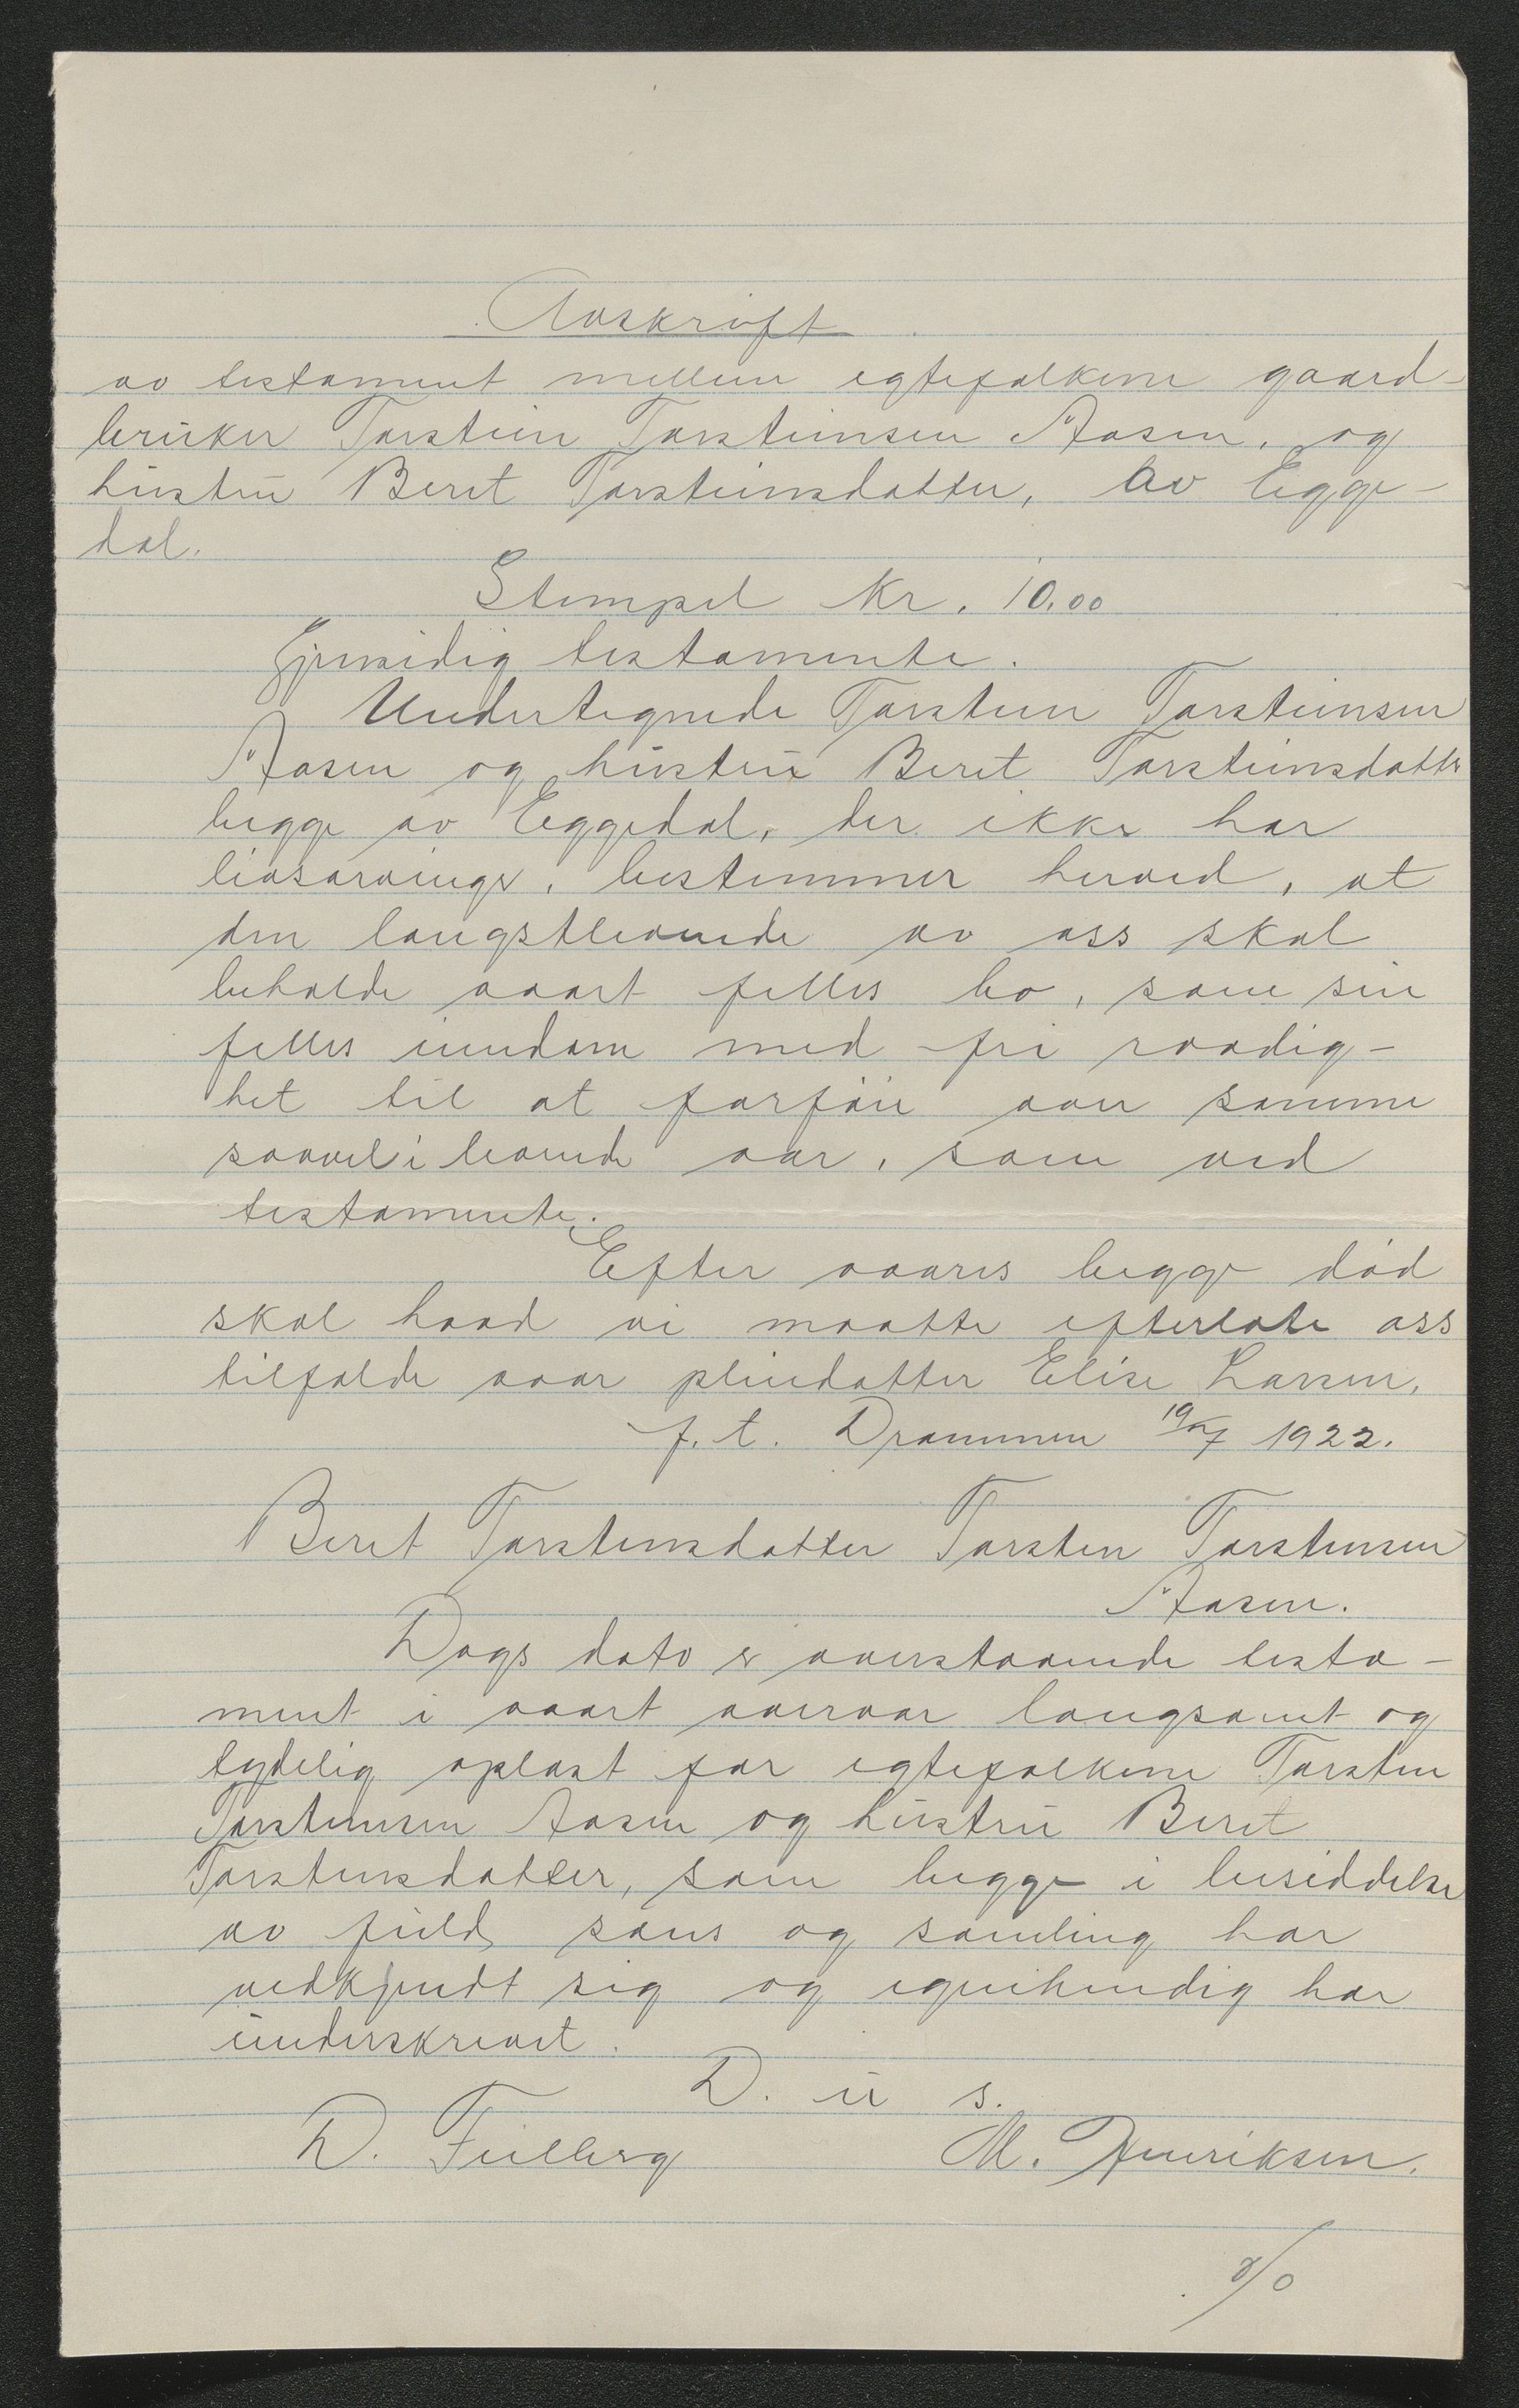 Avskrift
av testament mellem egtefolkene gaard-
bruker Torstein Torsteinsen Aasen, og
hustru Beret Torsteinsdatter, av Egge-
dal.
Stempel Kr. 10.00
Gjensidig testamente.
Undertegnede Torstein Torsteinsen
Aasen og hustru Beret Torsteinsdatter
begge av Eggedal, der ikke har
livsarvinger, bestemmer herved, at
den længstlevende av oss skal
beholde vaart felles bo, som sin
felles eiendom med fri raadig-
het til at forføie over samme
saavel i levende aar, som ved
testamente.
Efter vaares begge død
skal hvad vi maatte efterlate oss
tilfalde vaar pleiedatter Elise Larsen.
f. t. Drammen 19/7 1922.
Beret Torstensdatter Torsten Torstensen
Aasen.
Dags dato er overstaaende testa-
ment i vaart overvær langsomt og
tydelig oplæst for egtefolkene Torsten
Torstensen Aasen og hustru Beret
Torstensdatter, som begge i besiddelse
av fuld sans og samling har
vedkjendt sig og egenhendig har
underskrevet.
D. u s.
M. Henriksen.